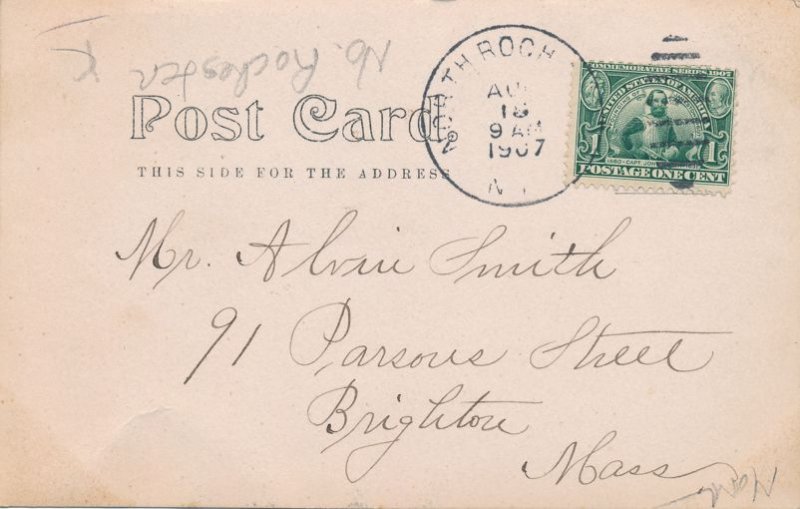 No. Rochester
Post Card
THIS SIDE FOR THE ADDRESS
NORTH ROCH
AU
18
9 AM
1907
N
COMMEMORATIVE SERIES 1907
UNITED STATES OF AMERICA
1 1
1580 CAPT. JOHN
POSTAGE ONE CENT
Mr. Alvin Smith
91 Parsons Street
Brighton
Mass